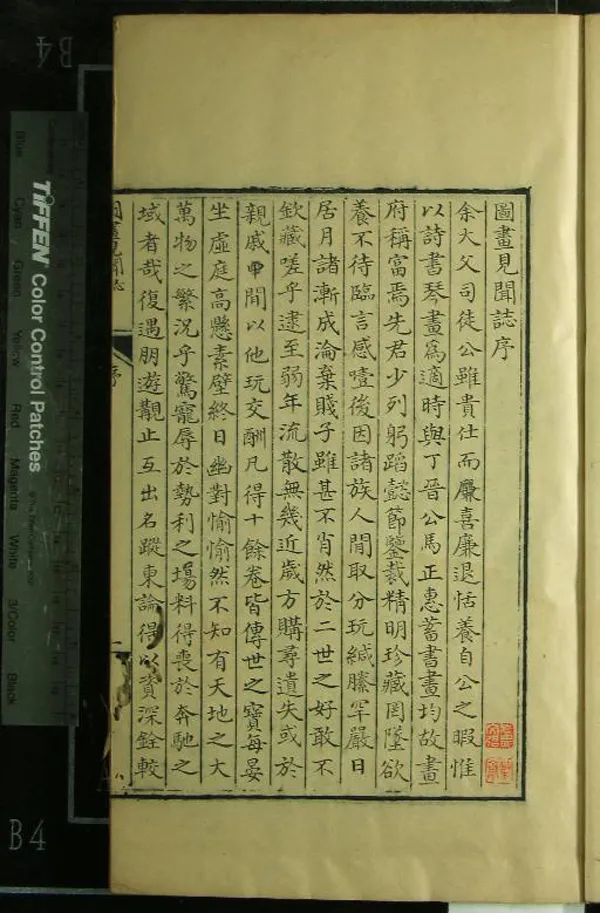 圖畫見聞誌序
余大父司徒公雖貴仕而廉喜廉退恬養自公之暇惟
以詩書琴畫爲適時與丁晉公馬正惠蓄書畫均故畫
府稱富焉先君少列躬蹈懿節鑒裁精明珍藏罔墜欲
養不待臨言感噎後因諸族人間取分玩緘縢罕嚴日
居月諸漸成淪棄賤子雖甚不肖然於二世之好敢不
欽藏嗟乎逮至弱年流散無幾近歲方購尋遺失或於
親戚中間以他玩交酬凡得十餘卷皆傳世之寶每宴
坐虛庭高懸素壁終日幽對愉愉然不知有天地之大
萬物之繁況乎驚寵辱於勢利之場料得喪於奔馳之
域者哉復遇朋遊觀止互出名蹤柬論得以資深銓較
圖畫見聞誌
序
一
TIFFEN Color Control Patches
Blue
Cyan
Green
Yellow
Red
Magenta
White
3/Color
Black
B4
B4